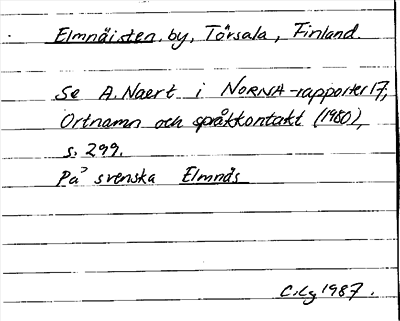 Elmnäisten, by, Törsala, Finland
Se A. Naert i NORNA-rapporter 17,
Ortnamn och språkkontakt (1980),
s. 299.
På svenska Elmnäs
C.Lg 1987.